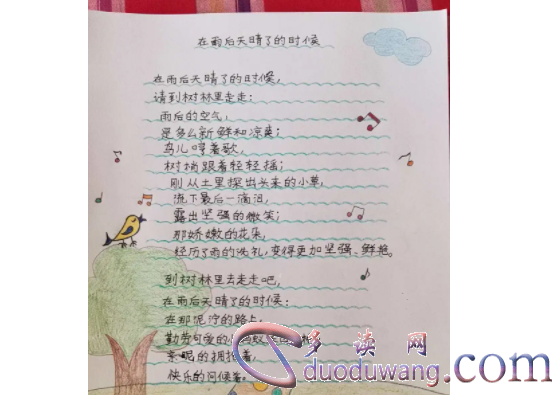 在雨后天晴了的时候
在雨后天晴了的时候,
请到树林里走走:
雨后的空气,
是多么新鲜和凉爽;
鸟儿哼着歌,
树梢跟着轻轻摇;
刚从土里探出头来的小草,
流下最后一滴泪,
露出坚强的微笑;
那娇嫩的花朵,
经历了雨的洗礼,变得更加坚强、鲜艳。
到树林里去走走吧,
在雨后天晴了的时候:
在那泥泞的路上,
勤劳可爱的
亲昵的拥抱着,
快乐的问候着。
多读网
duoduwang.com